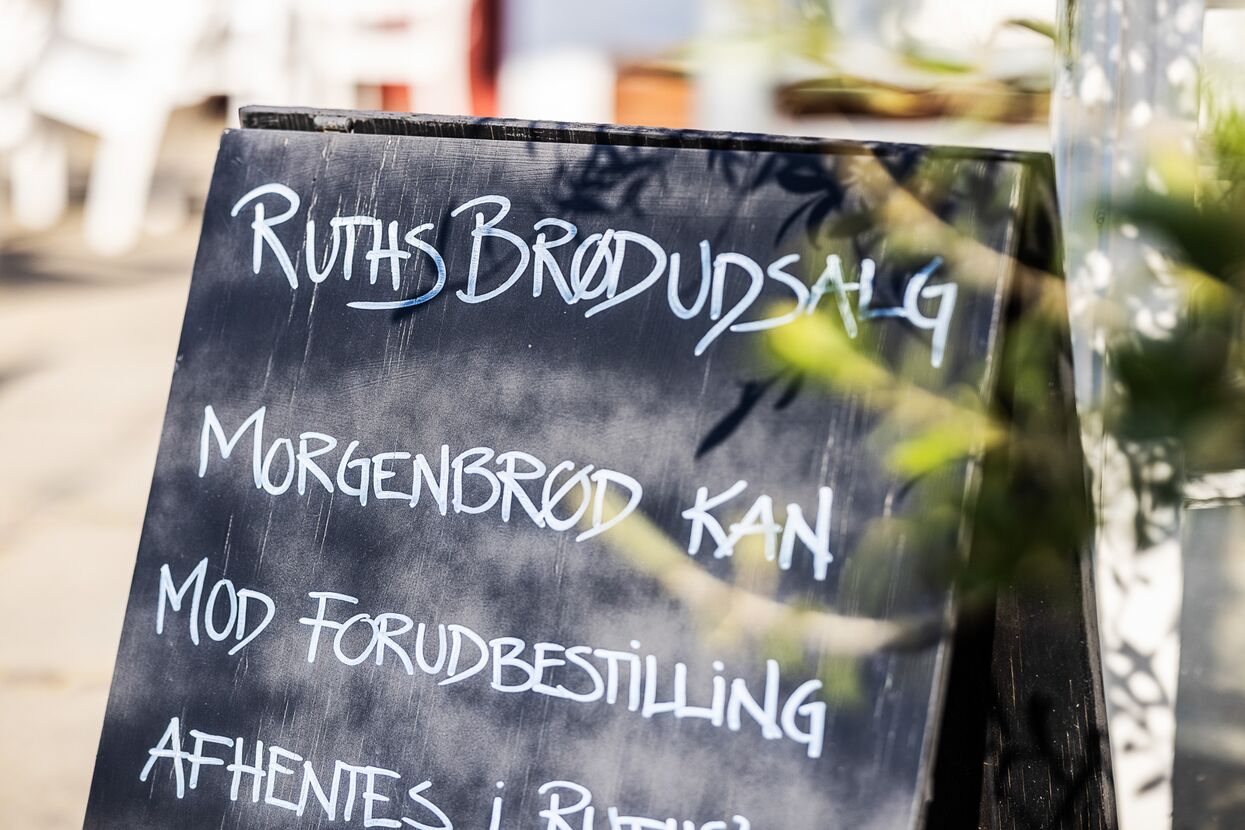 RUTHS BRØDUDSALG
MORGENBRØD KAN
MOD FORUDBESTILLING
AFHENTES i RUTHS'